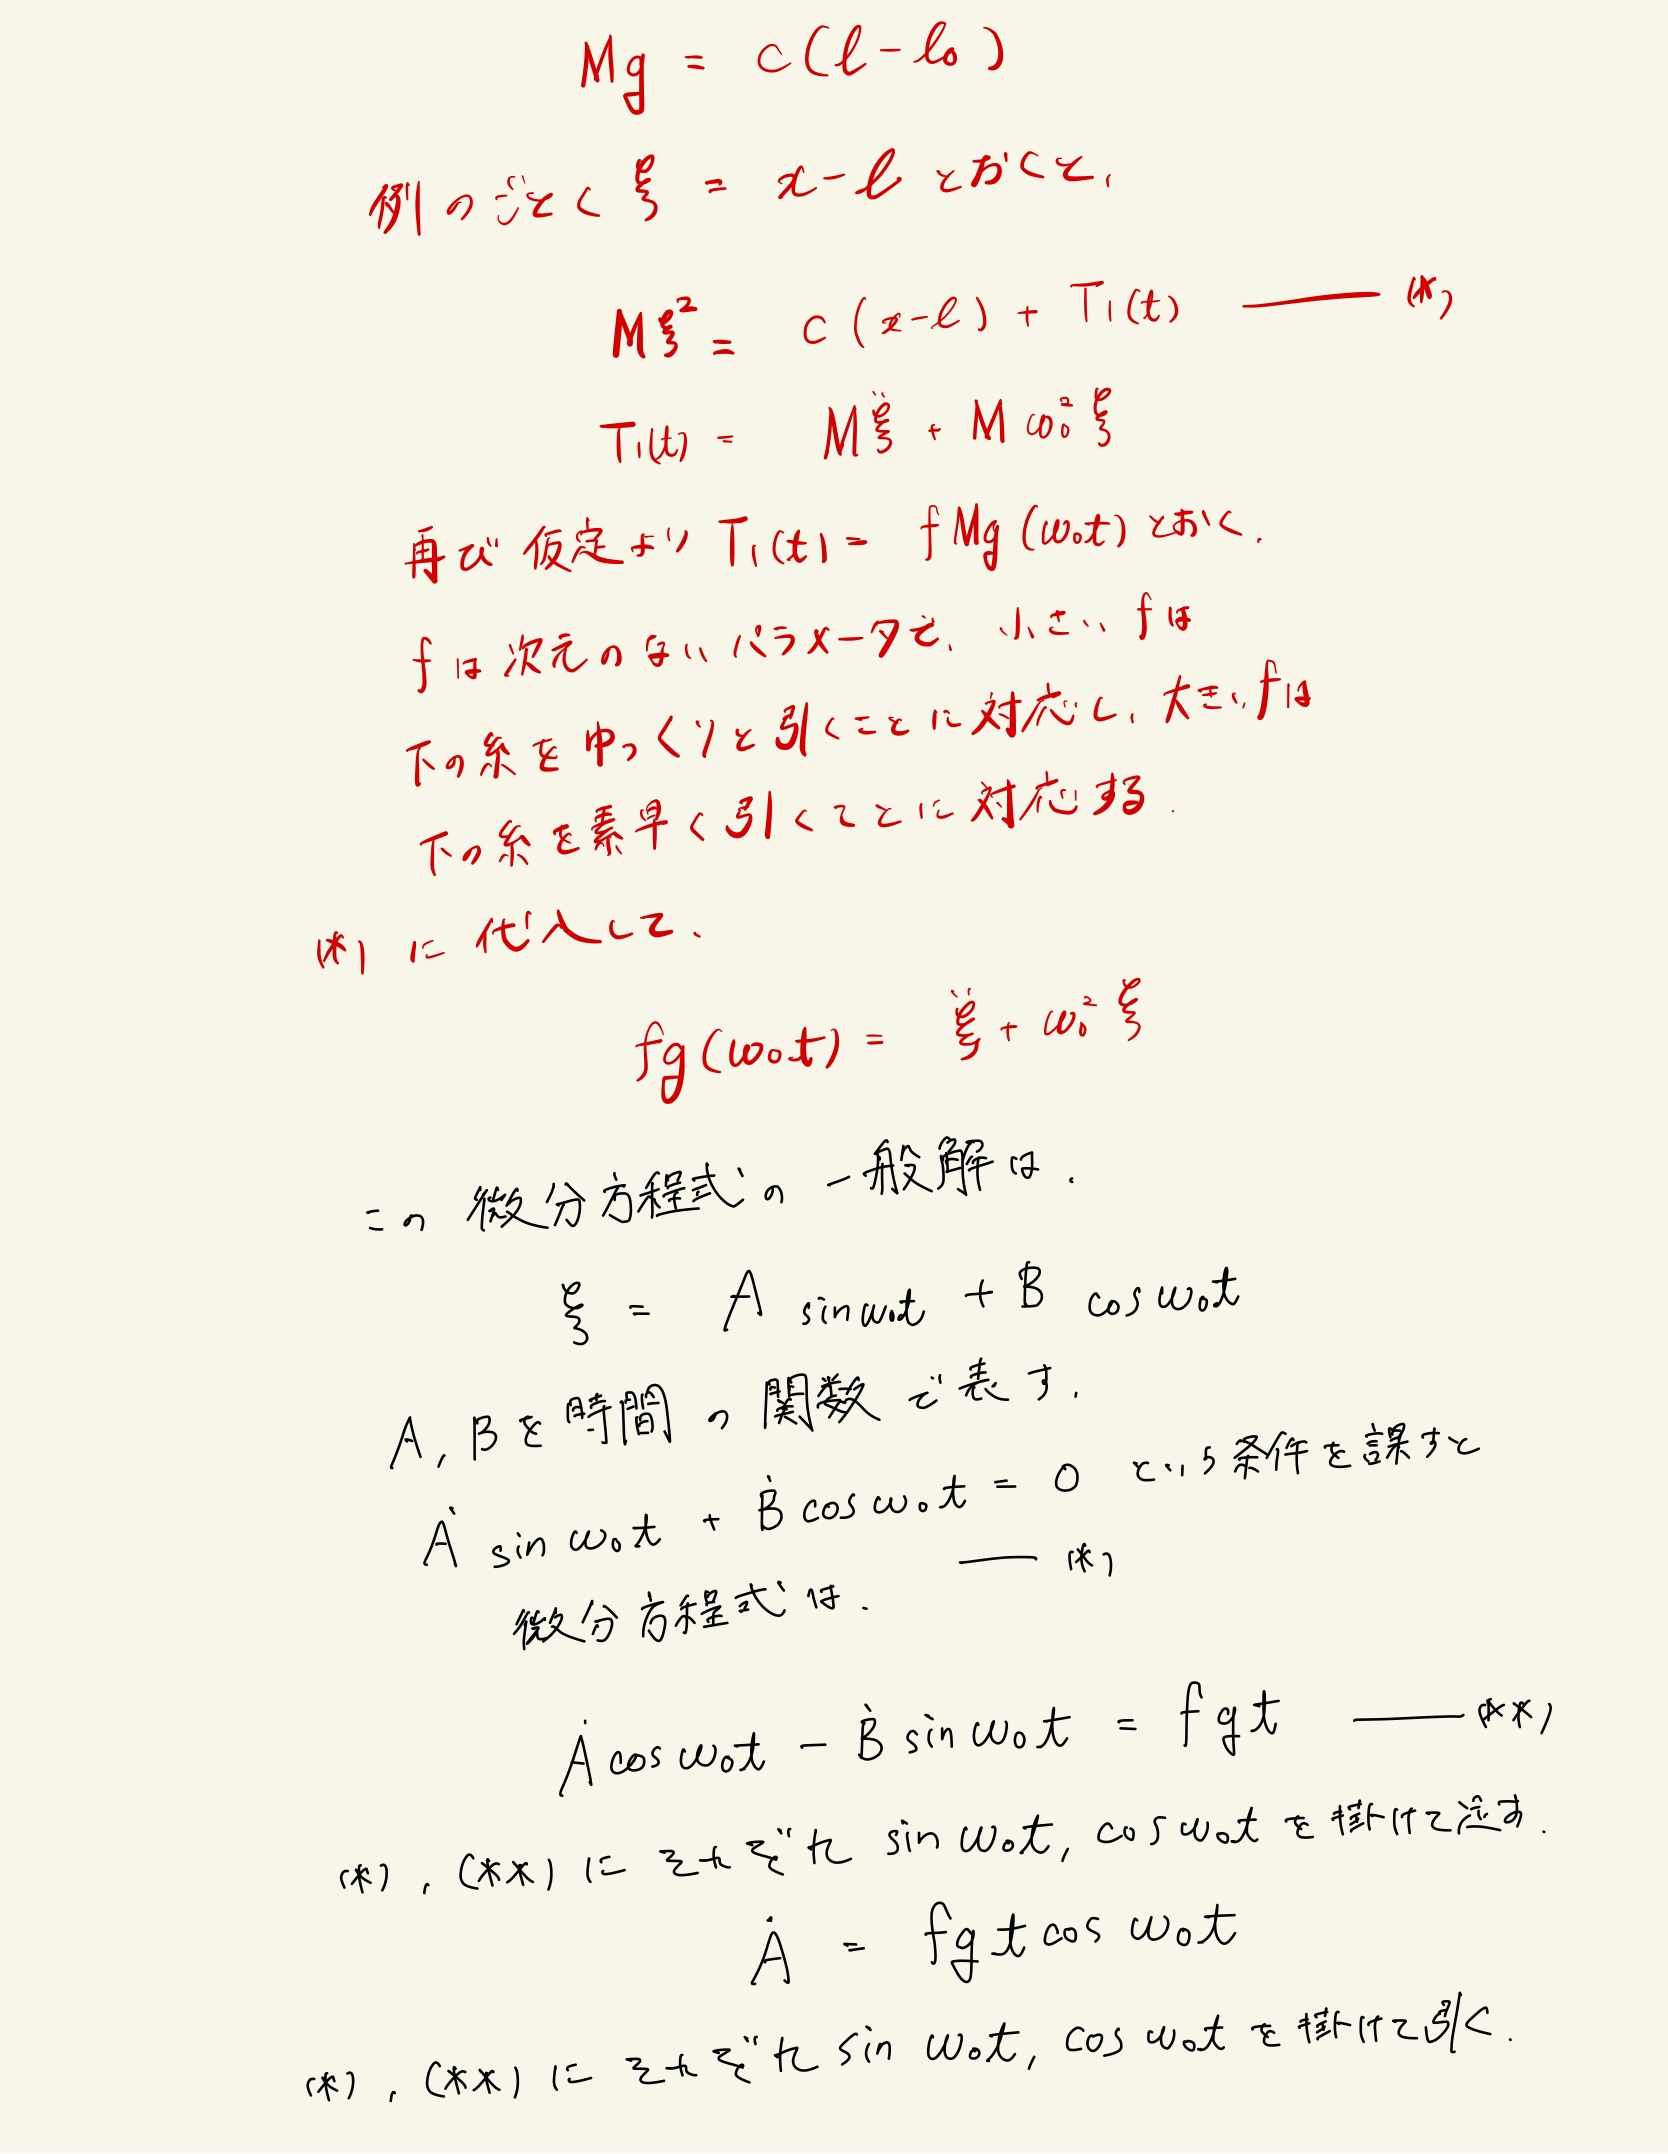 Mg = c(l-l₀)
例のごとく ξ = x-l とおくと、
Mξ² = c(x-l) + T₁(t) —— (*)
T₁(t) = Mξ̈ + Mω₀²ξ
再び仮定より T₁(t) = fMg(ω₀t) とおく.
fは次元のないパラメータで、小さいfは
下の糸をゆっくりと引くことに対応し、大きいfは
下の糸を素早く引くことに対応する.
(*)に代入して、
fg(ω₀t) = ξ̈ + ω₀²ξ
この微分方程式の一般解は.
ξ = A sinω₀t + B cosω₀t
A, Bを時間の関数で表す.
Ȧ sinω₀t + Ḃ cosω₀t = 0 という条件を課すと
—— (*)
微分方程式は.
Ȧ cosω₀t - Ḃ sinω₀t = fgt —— (**)
(*), (**)にそれぞれ sinω₀t, cosω₀t を掛けて辺す.
Ȧ = fgt cosω₀t
(*), (**)にそれぞれ sinω₀t, cosω₀t を掛けて引く.